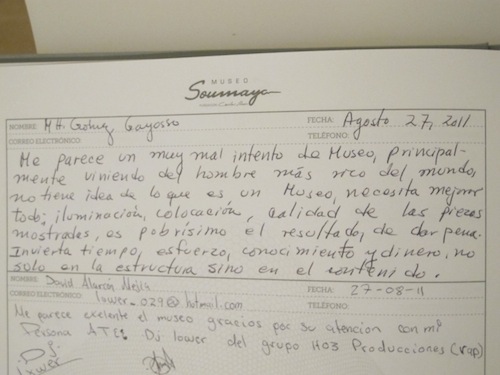 MUSEO
Soumaya
NOMBRE: MH. Gómez Gayosso FECHA: Agosto 27, 2011
CORREO ELECTRÓNICO: TELÉFONO:
Me parece un muy mal intento de Museo, principal-
mente viniendo del hombre más rico del mundo,
no tiene idea de lo que es un Museo, necesita mejorar
todo; iluminación, colocación, calidad de las piezas
mostradas, es pobrísimo el resultado, de dar pena.
Invierta tiempo, esfuerzo, conocimiento y dinero, no
solo en la estructura sino en el contenido.
NOMBRE: David Alarcón FECHA: 27-08-11
CORREO ELECTRÓNICO: lower_029@hotmail.com TELÉFONO:
Me parece exelente el museo gracios por su atencion con mi
Persona ATE: Dj lower del grupo H03 Producciones (rap)
Dj.
lower